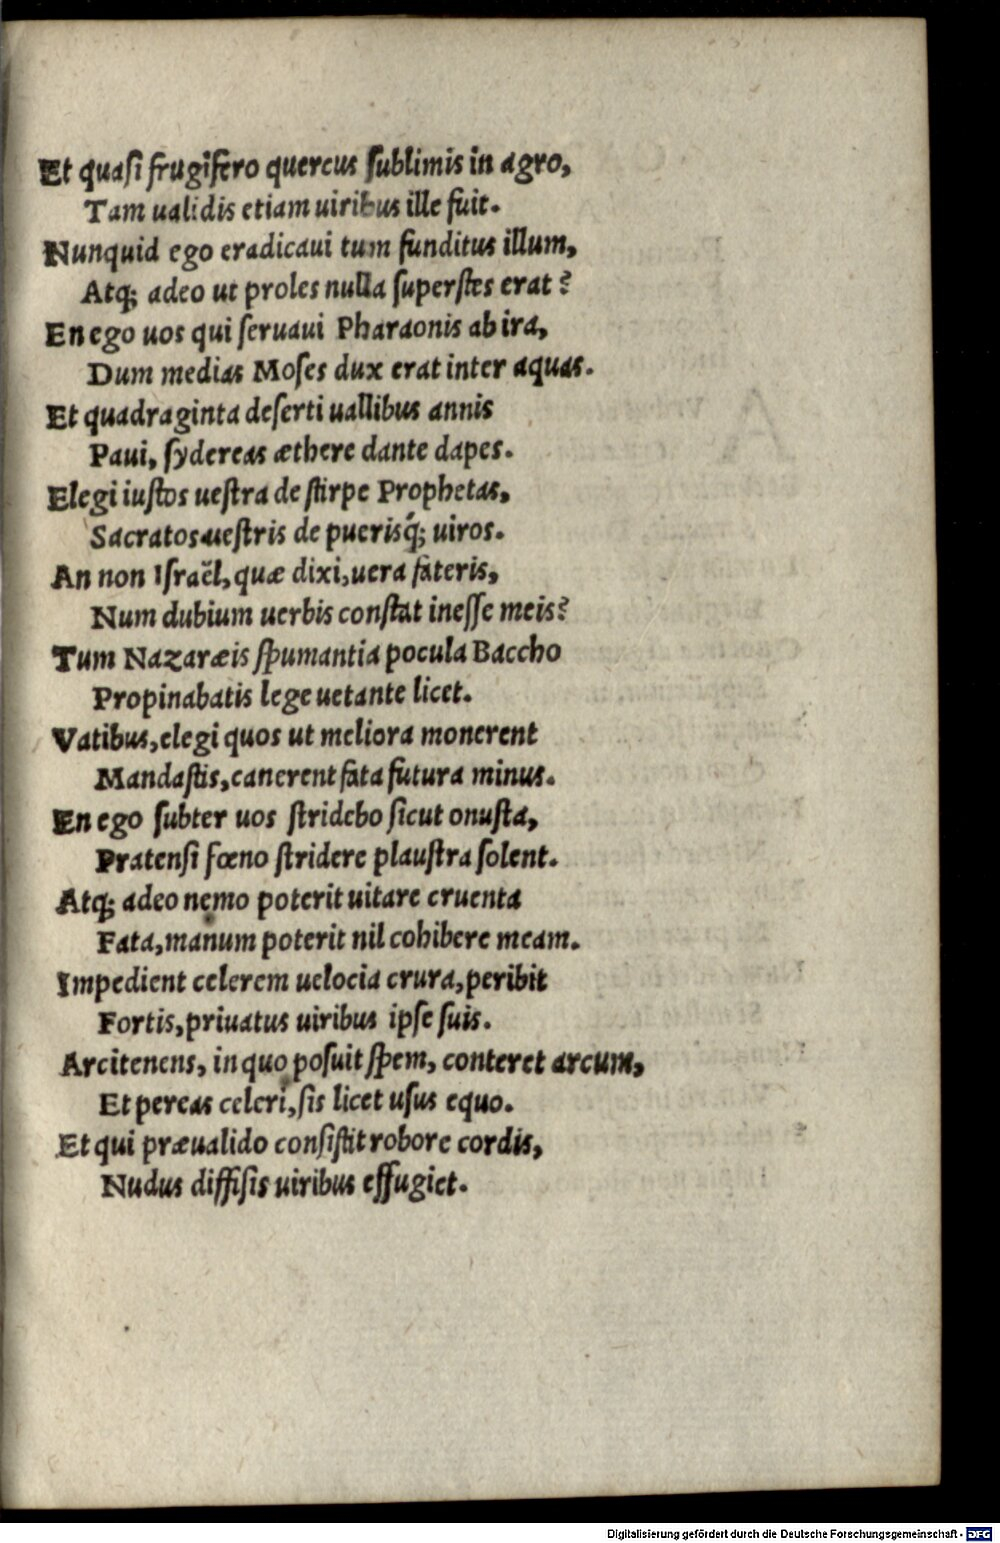 Et quaſi frugifero quercus ſublimis in agro,
Tam ualidis etiam uiribus ille fuit.
Nunquid ego eradicaui tum funditus illum,
Atq; adeo ut proles nulla ſuperſtes erat?
En ego uos qui ſeruaui Pharaonis ab ira,
Dum medias Moſes dux erat inter aquas.
Et quadraginta deſerti uallibus annis
Paui, ſydereas æthere dante dapes.
Elegi iuſtos ueſtra de ſtirpe Prophetas,
Sacratos ueſtris de puerisq́; uiros.
An non Iſraël, quæ dixi, uera fateris,
Num dubium uerbis conſtat ineſſe meis?
Tum Nazaræis ſpumantia pocula Baccho
Propinabatis lege uetante licet.
Vatibus, elegi quos ut meliora monerent
Mandaſtis, canerent fata futura minus.
En ego ſubter uos ſtridebo ſicut onuſta,
Pratenſi fœno ſtridere plauſtra ſolent.
Atq; adeo nemo poterit uitare cruenta
Fata, manum poterit nil cohibere meam.
Impedient celerem uelocia crura, peribit
Fortis, priuatus uiribus ipſe ſuis.
Arcitenens, in quo poſuit ſpem, conteret arcum,
Et pereas celeri, ſis licet uſus equo.
Et qui præualido conſiſtit robore cordis,
Nudus diffiſis uiribus effugiet.
Digitalisierung gefördert durch die Deutsche Forschungsgemeinschaft - DFG